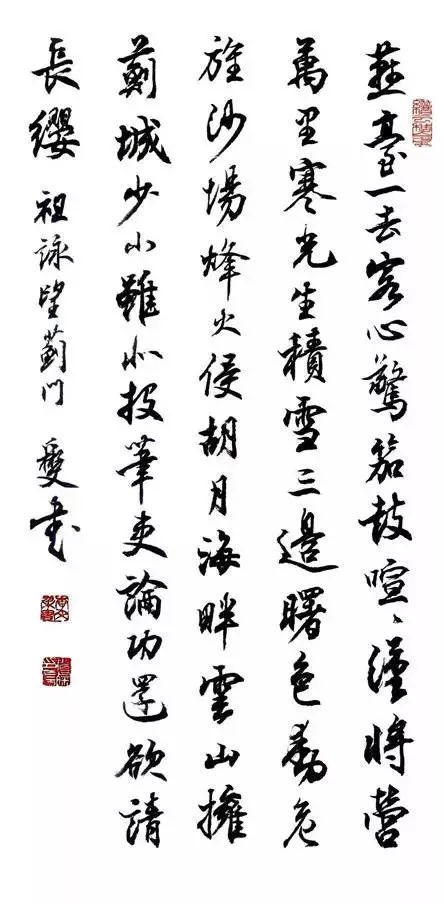 燕臺一去客心驚笳鼓喧〻漢將營
萬里寒光生積雪三邊曙色動危
旌沙場烽火侵胡月海畔雲山擁
薊城少小雖非投筆吏論功還欲請
長纓 祖詠望薊門 書